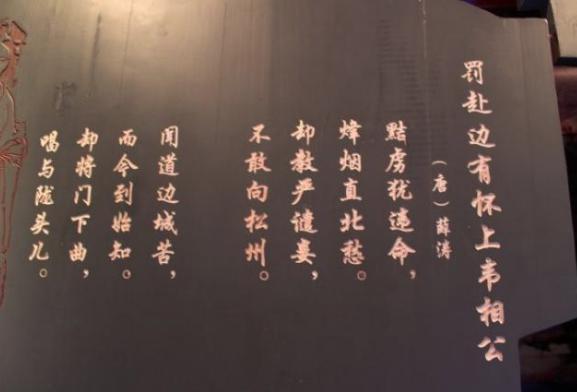 罚赴边有怀上韦相公
（唐）薛涛
黠虏犹违命，
烽烟直北愁。
却教严谴妾，
不敢向松州。
闻道边城苦，
而今到始知。
却将门下曲，
唱与陇头儿。